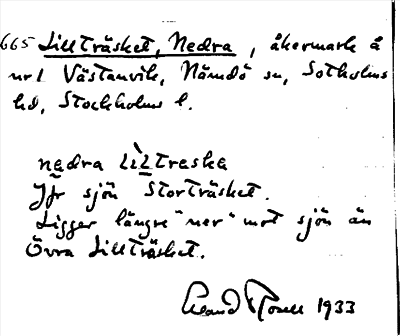 665 Lillträsket, Nedra, åkermark å
nr 1 Västanvik, Nämdö sn, Sotholms
hd, Stockholms l.
nedra Lìltreske
Jfr sjön Storträsket.
Ligger längre "ner" mot sjön än
Övra Lillträsket.
1933